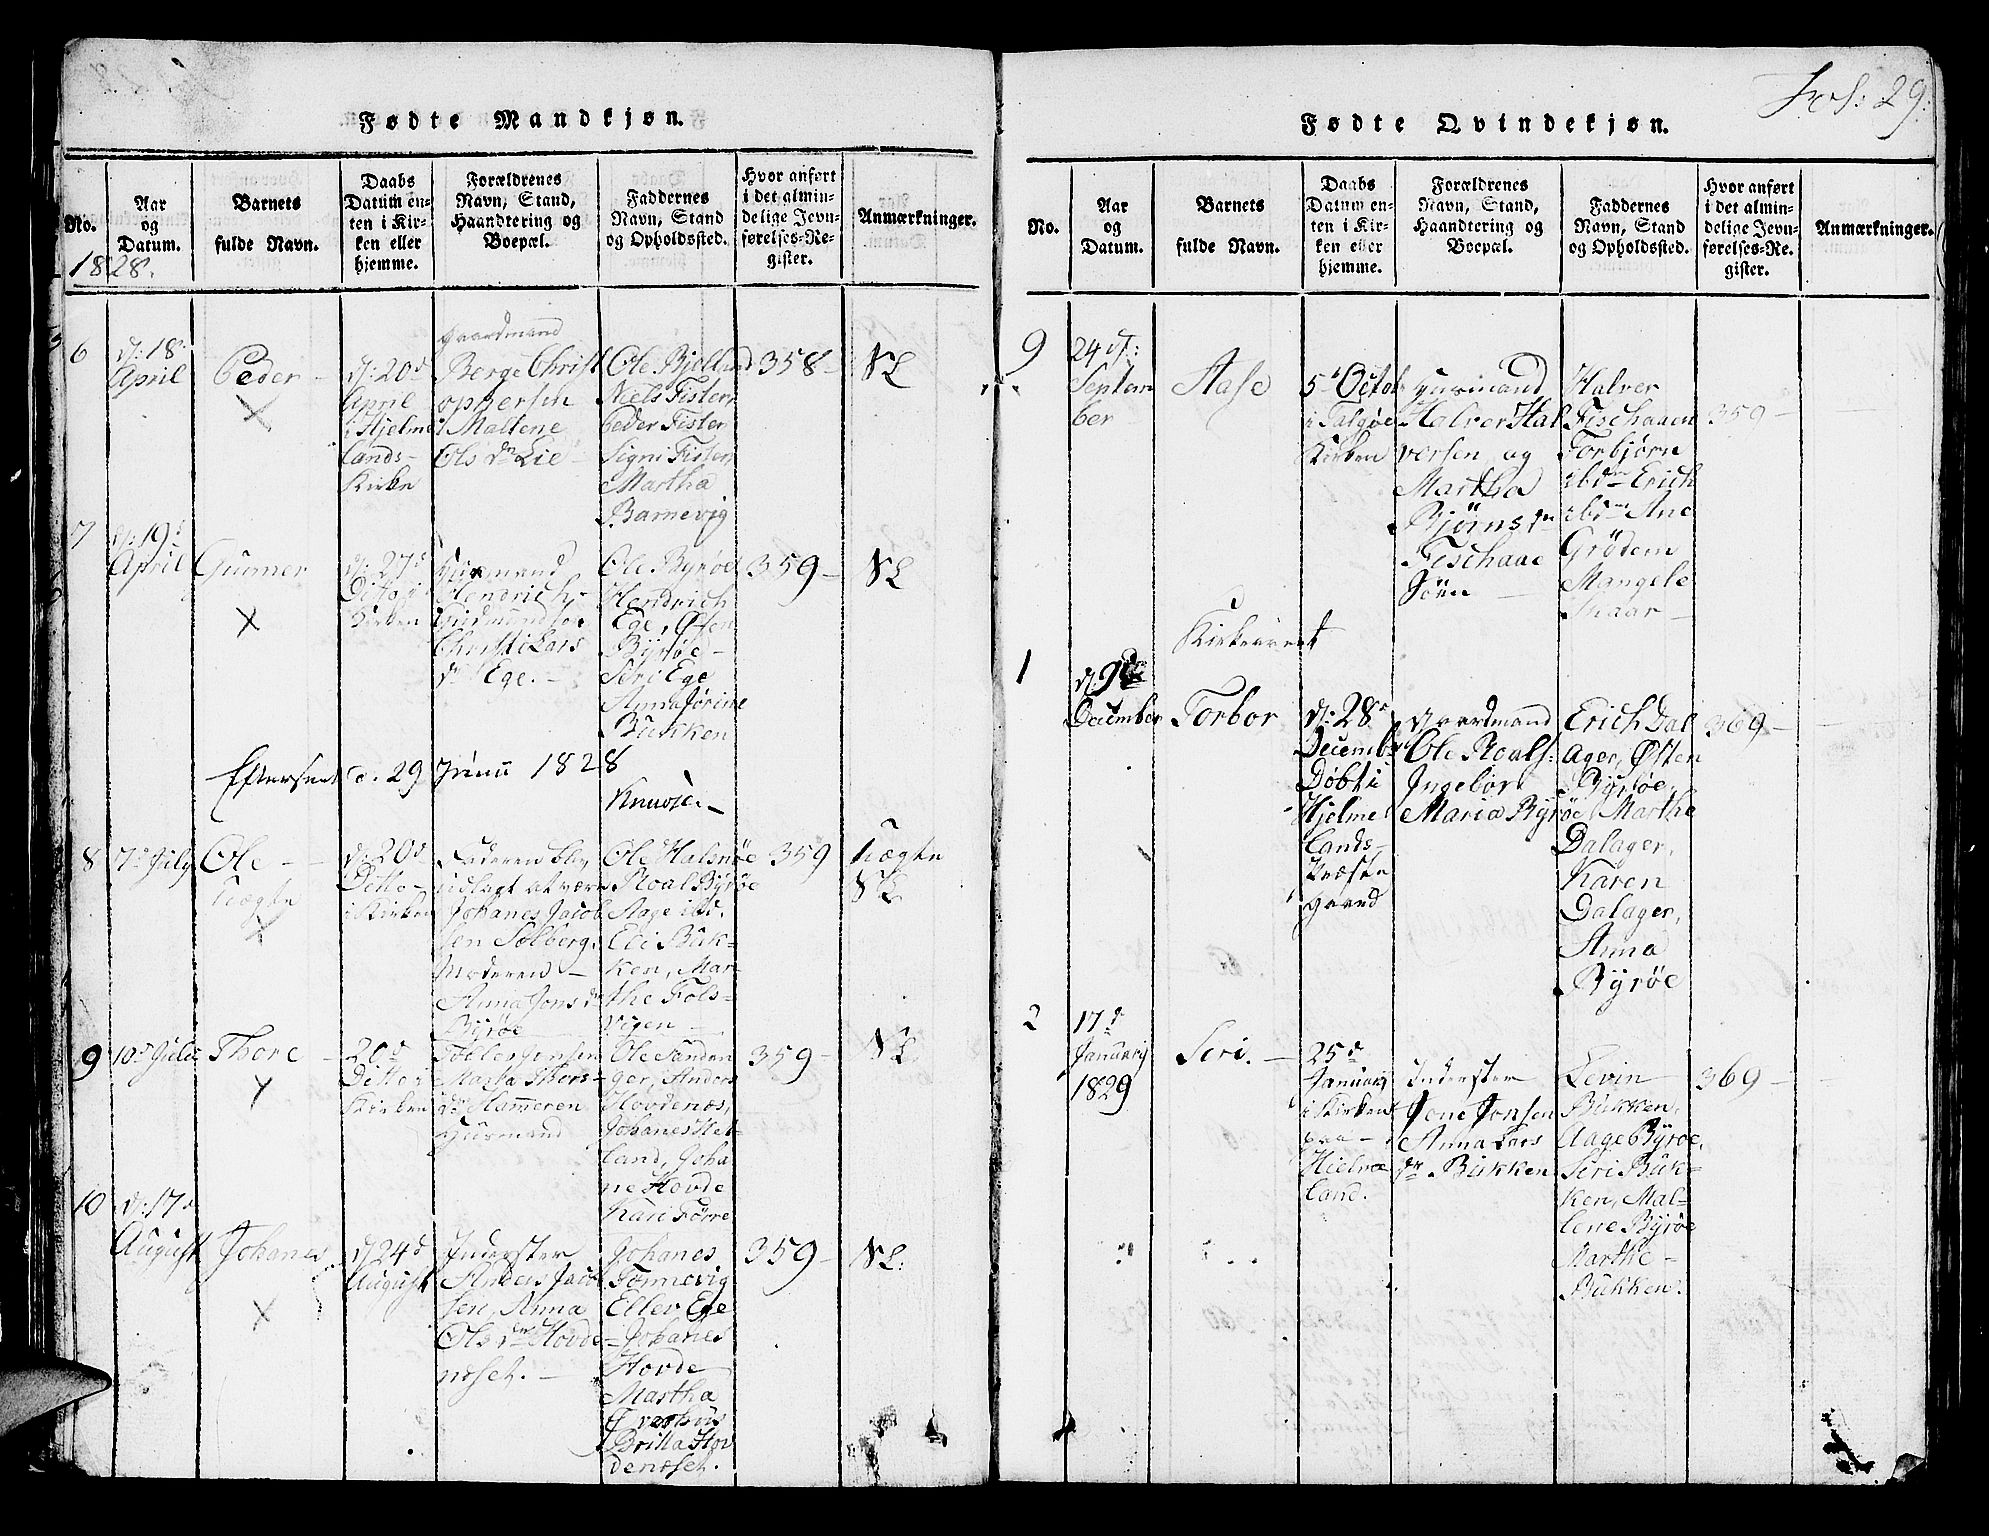 Fødte Mandkjøn.
No.
Aar
og
Datum.
Barnets
fulde Navn.
Daabs
Datum en-
ten i Kir-
ken eller
hjemme.
Forældrenes
Navn, Stand,
Haandtering og
Boepæl.
Faddernes
Navn, Stand
og Opholdssted.
Hvor anført
i det almin-
delige Jevn-
førelses-Re-
gister.
Anmærkninger.
1828.
6
d: 18
April
Peder
d: 20d
April
i Hjelme
lands-
Kirke
gaardmand
Berge Christ
ophersen
Maltene
Ols dr Lie
Ole Bjelland
Niels Fister
Peder Fister
Signi Fister
Martha
Barnevig
358-
NL
7
d: 19d
April
Gunner
d: 27d
Ditto i
Kirken
Huusmand
Hendrich
Gudmundsen
Christi Lars
dr Ege.
Ole Byrøe
Hendrich
Ege, Østen
Byrøe
Seri Ege
Anna Jørine
Bukken
359-
NL
Efterseet d. 29 Junii 1828
Knudse
8
7d July
Ole
Uægte
d: 20d
Ditto
i Kirken
Faderen blev
udlagt at være
Johanes Jacob
sen Solberg.
Moderen
Anna Jons dr
Byrøe
Ole Halsnøe
Roal Byrøe
Aage ibd.
Eli Buk-
ken, Mar-
the Fols-
vigen
359
Uægte
NL
9
10d Julii
Thore
20d
Ditto i
Kirken
Marta Thors-
dr Hammeren
Huusmand
Ole Sanden
ger, Anders
Hovdenes,
Johanes Hel-
land, Joha-
ne Hovde
Kari Førre
359-
NL.
10
d: 17d
August
Johanes
d 24d
August
Inderster
Anders Jacob
sen, Anna
Ols dr Hovde-
neset.
Johanes
Tømmevig
Ellev Ege
Johanes
Hovde
Martha
Brilla Hov
deneset.
359-
NL:
Fol: 29.
Fødte Qvindekjøn.
No.
Aar
og
Datum.
Barnets
fulde Navn.
Daabs
Datum en-
ten i Kir-
ken eller
hjemme.
Forældrenes
Navn, Stand,
Haandtering og
Boepæl.
Faddernes
Navn, Stand
og Opholdssted.
Hvor anført
i det almin-
delige Jevn-
førelses-Re-
gister.
Anmærkninger.
9
24 d:
Septem
ber
Aase
5d Octob
i Talgøe
Kirken
Huusmand
Halver Hal
versen og
Martha
Bjørns dr
Fischaae
Halver
Fischaaen
Torbjørn
ibdm Erich
ibdm Ane
Grødem
Mangele
359-
Kirkeaaret
1
d: 9de
December
Torbor
d: 28d
Decembr
Døbt i
Hjelme
lands-
Præste
gaard
Gaardmand
Ole Roals:
Ingebor
Maria Byrøe
Erich Dal
ager, Østen
Byrøe,
Marthe
Dalager,
Karen
Dalager,
Anna
Byrøe
369-
2
17d
January
1829
Seri.
25d
January
i Kirken
paa
Hielme
land.
Inderster
Jone Jonsen
Anna Lars
dr Bukken
Levin
Bukken,
Aage Byrøe,
Seri Buk-
ken, Mal-
lene Byrøe
Marthe
Bukken.
369-